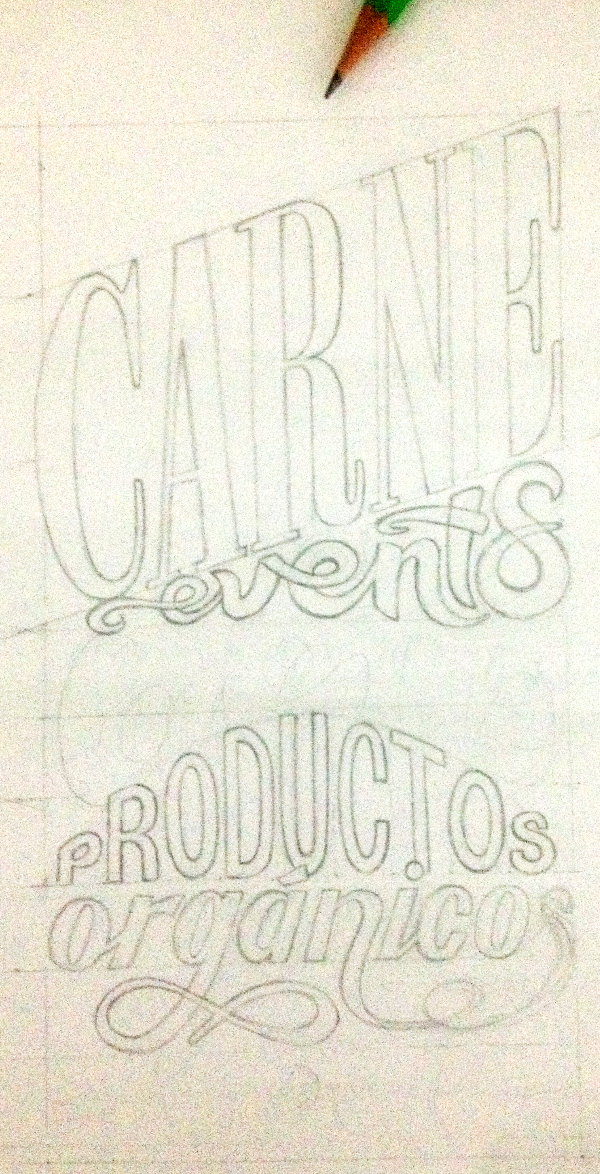 CARNE
events
PRODUCTOS
orgánicos